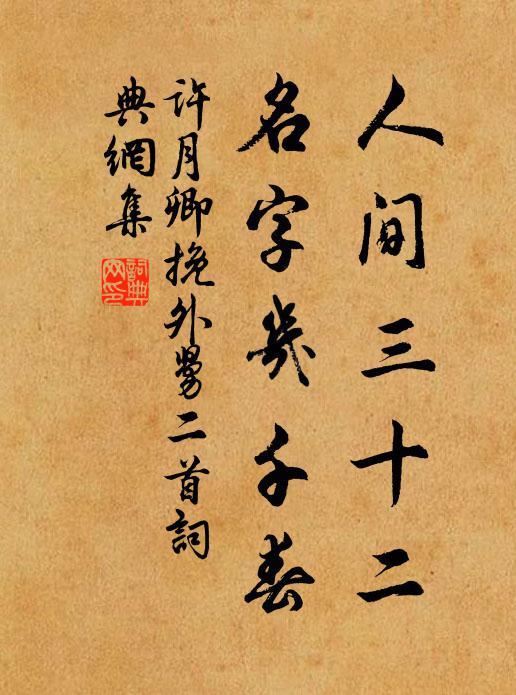 人间三十二
名字几千春
許月卿挽外舅二首詞
典網集
詞典網印